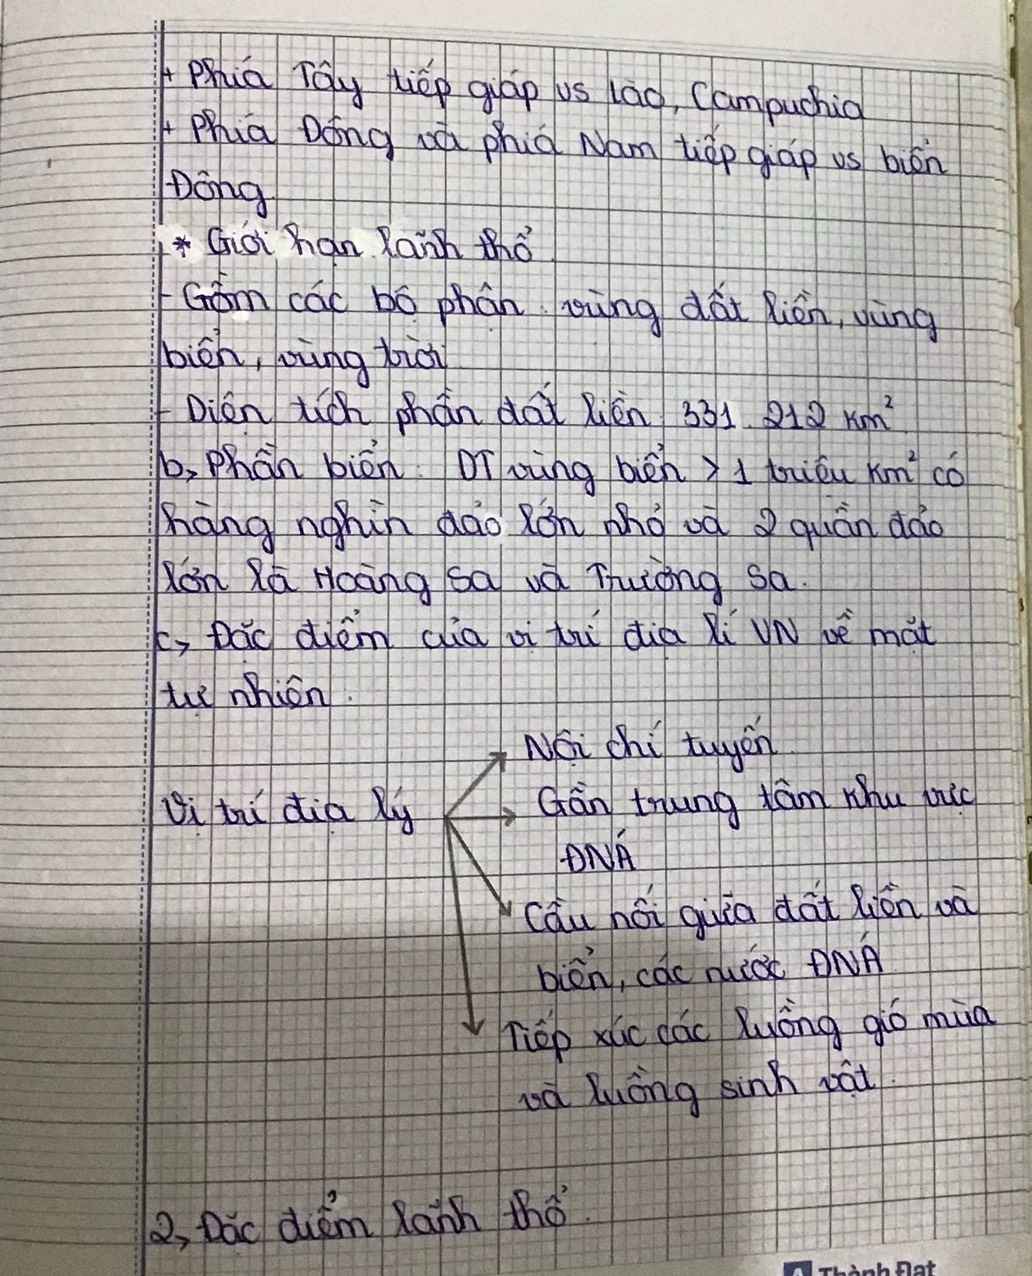 + Phía Tây tiếp giáp vs Lào, Campuchia
+ Phía Đông và phía Nam tiếp giáp vs biển
Đông
* Giới hạn lãnh thổ
- Gồm các bộ phận: vùng đất liền, vùng
biển, vùng trời
- Diện tích phần đất liền: 331.212 km²
b, Phần biển: DT vùng biển > 1 triệu km² có
hàng nghìn đảo lớn nhỏ và 2 quần đảo
lớn là Hoàng Sa và Trường Sa.
c, Đặc điểm của vị trí địa lí VN về mặt
tự nhiên.
Nội chí tuyến
Vị trí địa lý
Gần trung tâm khu vực
ĐNÁ
Cầu nối giữa đất liền và
biển, các nước ĐNÁ
Tiếp xúc các luồng gió mùa
và luồng sinh vật.
2, Đặc điểm lãnh thổ.
Thành Đạt